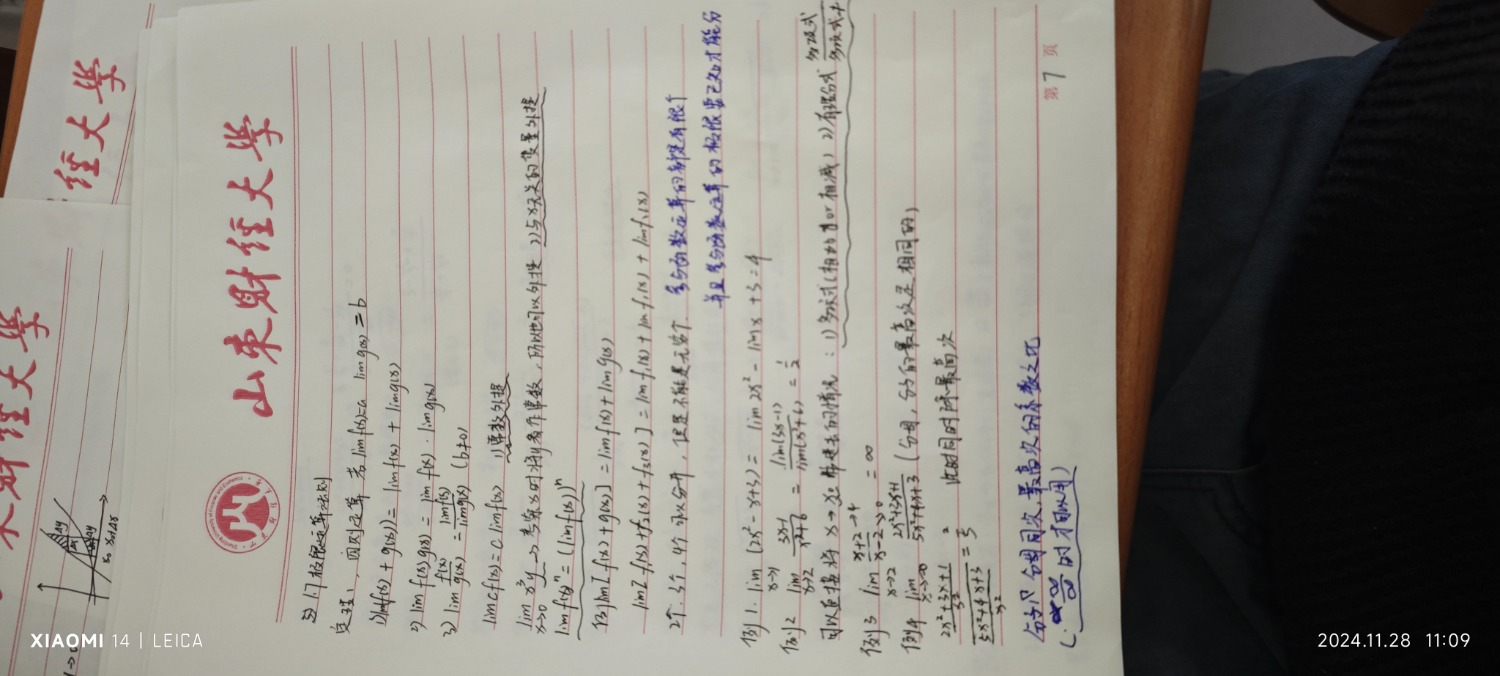 山东财经大学
§1.7 极限运算法则
定理1, 四则运算 若 limf(x)=a limg(x)=b
1) lim(f(x)+g(x))=limf(x)+limg(x)
2) lim f(x)g(x)=lim f(x)·limg(x)
3) lim f(x)/g(x) = limf(x)/limg(x) (b≠0)
limcf(x)=c limf(x) 1)常数外提
lim x→0 x³y → 考察x时将y看作常数, 所以也可以外提 2)与x无关的变量外提
limf(x)ⁿ=(limf(x))ⁿ
lim[f(x)+g(x)]=limf(x)+limg(x)
lim[f₁(x)+f₂(x)+f₃(x)]=limf₁(x)+limf₂(x)+limf₃(x)
2个, 3个, 4个 可以分开, 但是不能是无穷个
参与函数运算的都是有限个
并且参与函数运算的极限要已知才能分
例1. lim x→1 (2x²-x+3)=lim2x²-limx+3=4
例2 lim x→2 3x-1/x²+6 = lim(3x-1)/lim(x²+6) = 1/2
可以直接将 x→x₀ 带进去的情况: 1)多项式(相加和相减) 2)有理分式 多项式/多项式≠
例3 lim x→2 x+2→4/x-2→0 =∞
例4 lim x→∞ 2x²+3x+1/5x²+6x+3 (分母, 分子的最高次是相同的)
2x²+3x+1/x² / 5x²+6x+3/x² = 2/5 此时同时除最高次
分子/分母同次, 最高次的系数之比
(∞/∞时才可以用)
第 7 页
经大学
东财经大学
XIAOMI 14 | LEICA
2024.11.28 11:09